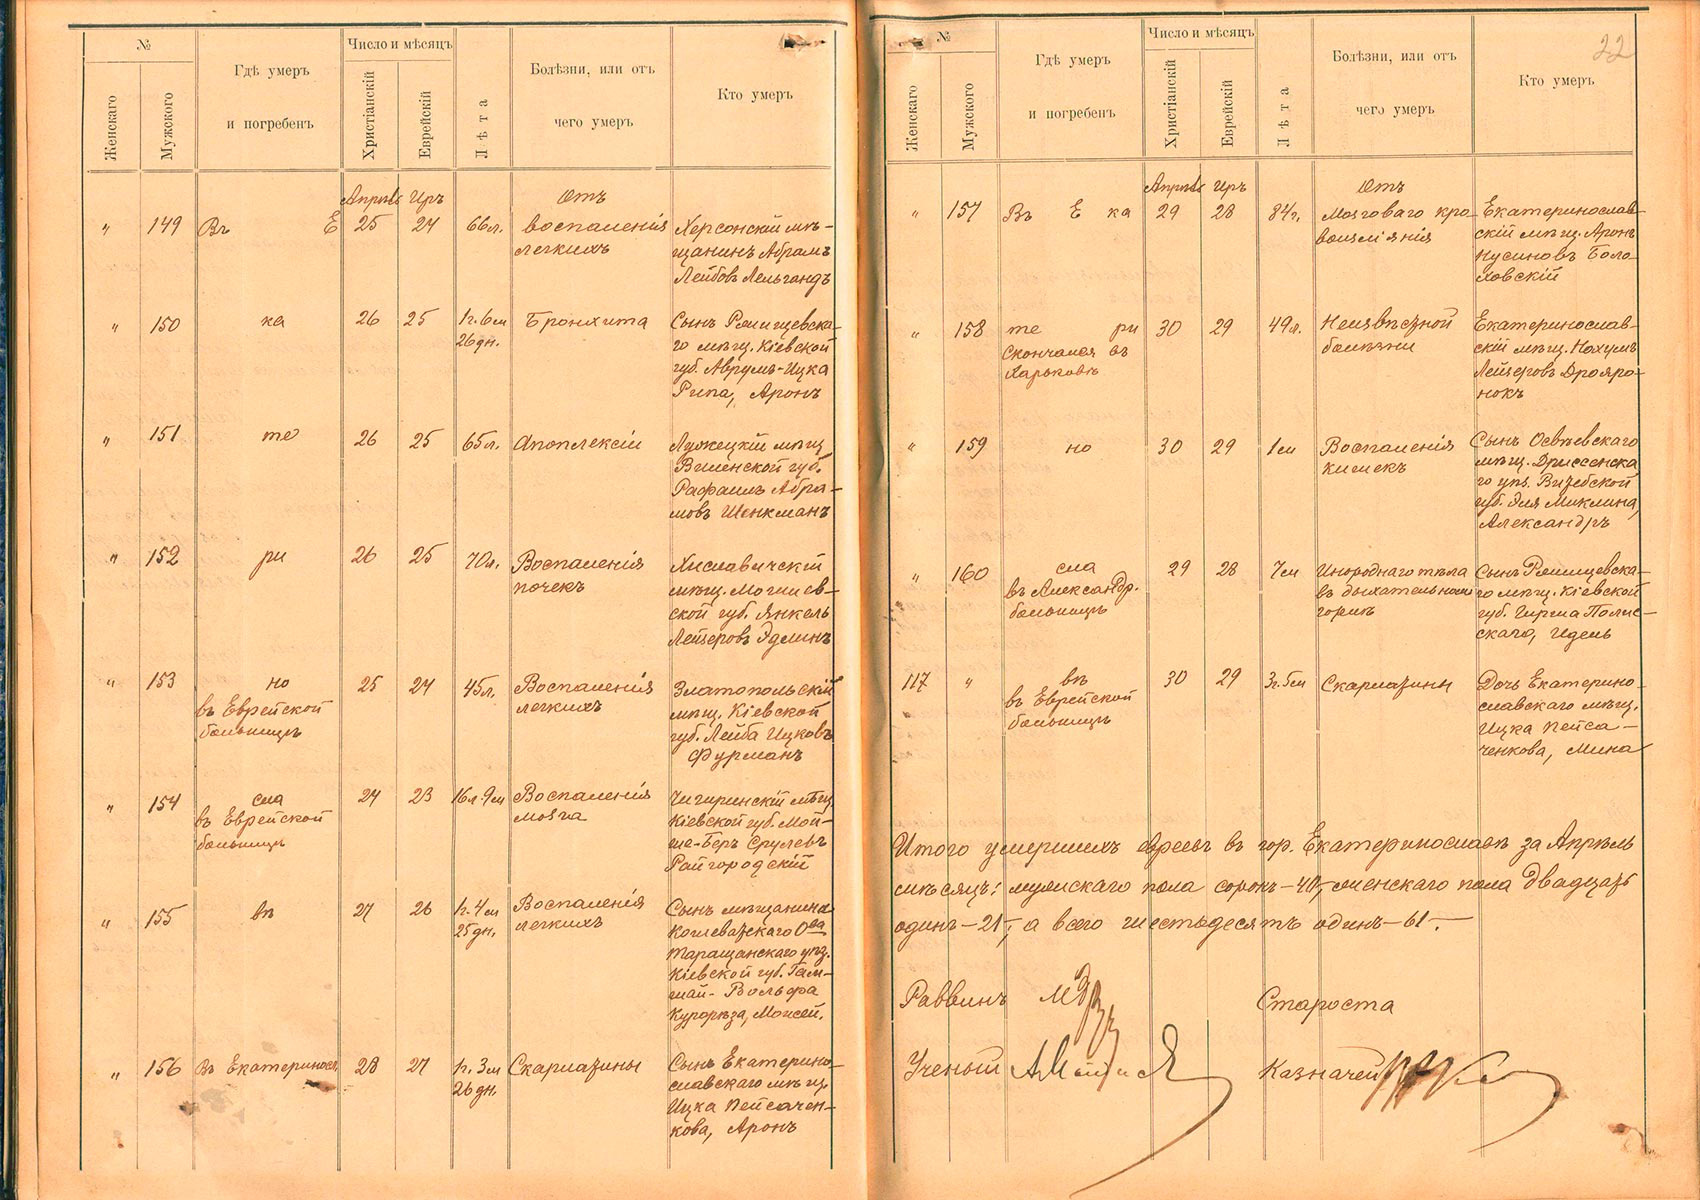 №
Число и мѣсяцъ
Женскаго
Мужского
Гдѣ умеръ
и погребенъ
Христіанскій
Еврейскій
Лѣта
Болѣзни, или отъ
чего умеръ
Кто умеръ
Апрѣль Иръ Отъ
" 149 Въ Е 25 24 66л. воспаленія Херсонскій мѣ-
легкихъ щанинъ Абрамъ
Лейбовъ Лельгандъ
" 150 ка 26 25 1г. 6м Бронхита Сынъ Ржищевска-
26 дн. го мѣщ. Кіевской
губ. Аврумъ-Ицка
Рипа, Аронъ
" 151 те 26 25 65л. Апоплексіи мѣщ
Виленской губ.
Рафаилъ Абра-
мовъ Шенкманъ
" 152 ри 26 25 70л. Воспаленія Хиславичскій
почекъ мѣщ. Могилев-
ской губ. Янкель
Лейзеровъ Эдлинъ
" 153 но 25 24 45л. Воспаленія Златопольскій
въ Еврейской легкихъ мѣщ. Кіевской
больницѣ губ. Лейба Ицковъ
Фурманъ
" 154 сла 24 23 16л. 9м Воспаленія Чигиринскій мѣщ
въ Еврейской мозга Кіевской губ. Мой-
больницѣ ше-Беръ Срулевъ
Райгородскій
" 155 вѣ 27 26 1г. 4м Воспаленія Сынъ мѣщанина
25 дн. легкихъ Кошеватскаго О-ва
Таращанскаго уѣз.
Кіевской губ.
Вольфа
Мойсей.
" 156 Въ Екатеринославѣ 28 27 1г. 3м Скарлатины Сынъ Екатерино-
26 дн. славскаго мѣщ.
Ицка Пейсачен-
кова, Аронъ
22
№
Число и мѣсяцъ
Женскаго
Мужского
Гдѣ умеръ
и погребенъ
Христіанскій
Еврейскій
Лѣта
Болѣзни, или отъ
чего умеръ
Кто умеръ
Апрѣль Иръ Отъ
" 157 Въ Е ка 29 28 84г. Мозговаго кро- Екатеринослав-
воизліянія скій мѣщ. Аронъ
Нусиновъ Боло-
ховскій
" 158 те ри 30 29 49л. Неизвѣстной Екатеринослав-
скончался въ болѣзни скій мѣщ. Нохумъ
Харьковѣ Лейзеровъ
" 159 но 30 29 1м Воспаленія Сынъ Освѣевскаго
кишекъ мѣщ. Дриссенска
го уѣз. Витебской
губ. Эля Миклина,
Александръ
" 160 сла 29 28 7м Инороднаго тѣла Сынъ Ржищевска-
въ Александр. въ дыхательномъ го мѣщ. Кіевской
больницѣ горлѣ губ. Гирша Полис-
скаго, Идель
117 " вѣ 30 29 3г. 5м Скарлатины Дочь Екатерино-
въ Еврейской славскаго мѣщ.
больницѣ Ицка Пейса-
ченкова, Мина
Итого умершихъ евреевъ въ гор. Екатеринославѣ за Апрѣль
мѣсяцъ: мужскаго пола сорокъ-40-, женскаго пола двадцать
одинъ-21-, а всего шестьдесятъ одинъ-61.-
Раввинъ Староста
Ученый Казначей